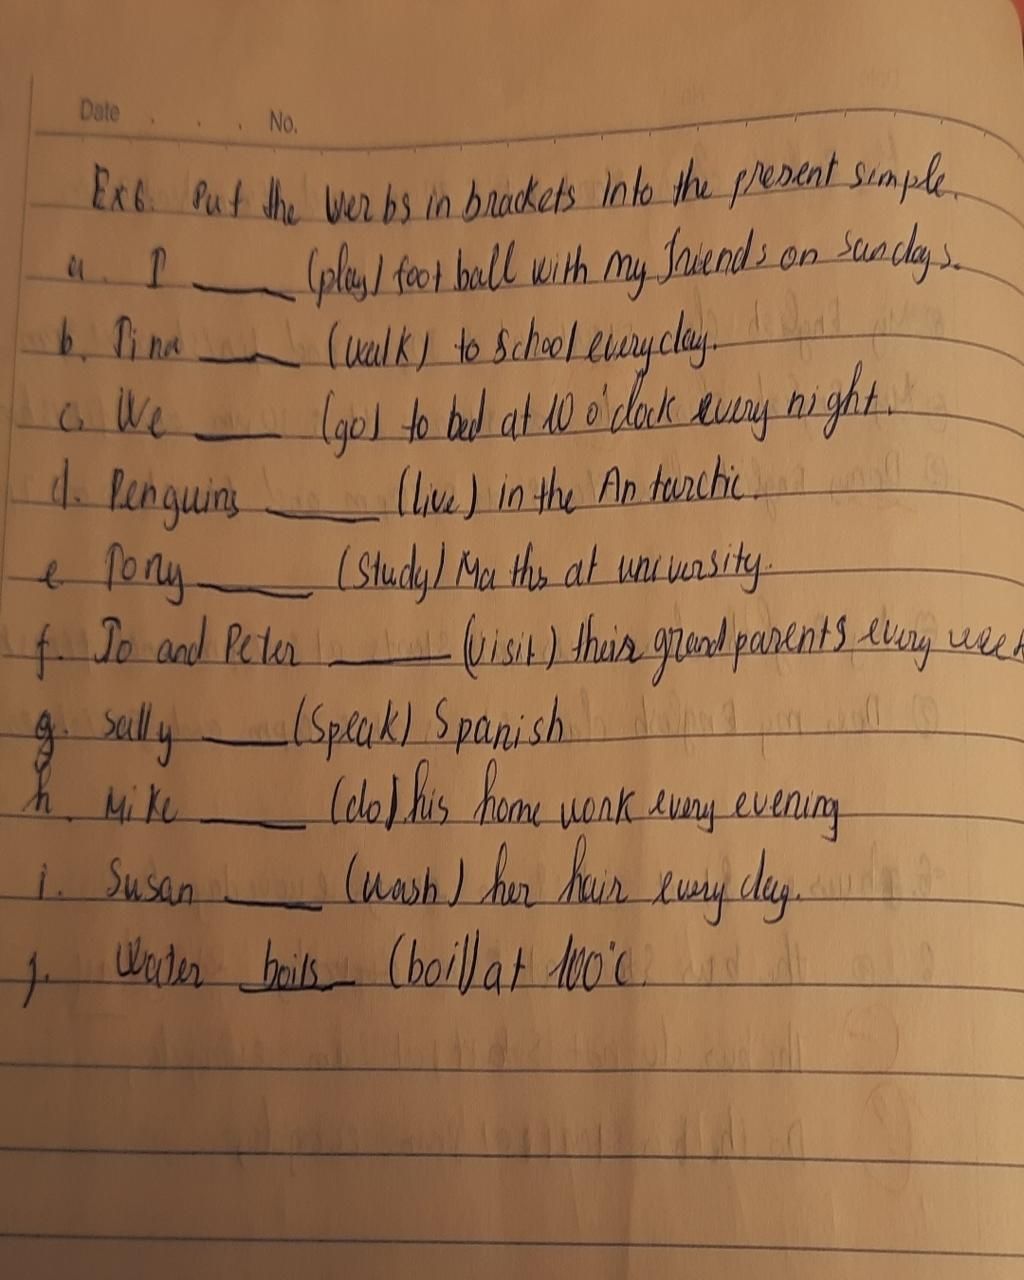 Date . . . No.
Ex6. Put the verbs in brackets into the present simple.
a. I ____ (play) football with my friends on sundays.
b. Tina ____ (walk) to school everyday.
c. We ____ (go) to bed at 10 o'clock every night.
d. Penguins ____ (live) in the Antarctic.
e Tony ____ (study) Maths at university.
f. Jo and Peter ____ (visit) their grandparents every week
g. Sally ____ (speak) Spanish
h. Mike ____ (do) his homework every evening
i. Susan ____ (wash) her hair everyday.
j. Water boils (boil) at 100°c.